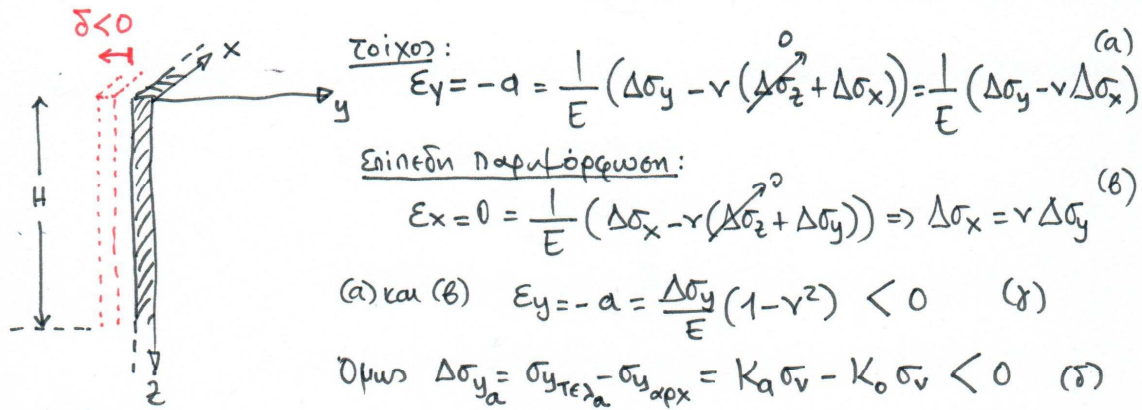 δ<0
x
y
H
z
τοίχος:
εy = -a = 1/E (Δσy - ν (Δσz + Δσx)) = 1/E (Δσy - νΔσx) (α)
0
Επίπεδη παραμόρφωση:
εx = 0 = 1/E (Δσx - ν(Δσz + Δσy)) => Δσx = ν Δσy (β)
0
(α) και (β) εy = -a = Δσy/E (1-ν²) < 0 (γ)
Όμως Δσyₐ = σyτελₐ - σyαρχ = Kₐ σv - K₀ σv < 0 (δ)